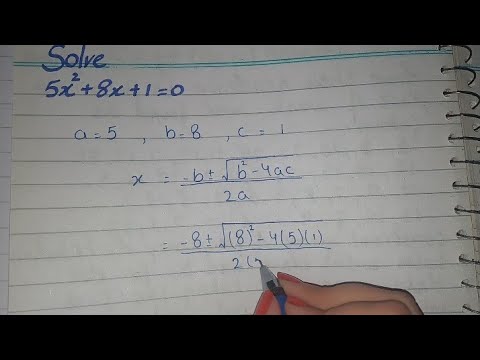 Solve
5x²+8x+1=0
a=5 , b=8 , c=1
x = -b±√b²-4ac
2a
= -8±√(8)²-4(5)(1)
2(